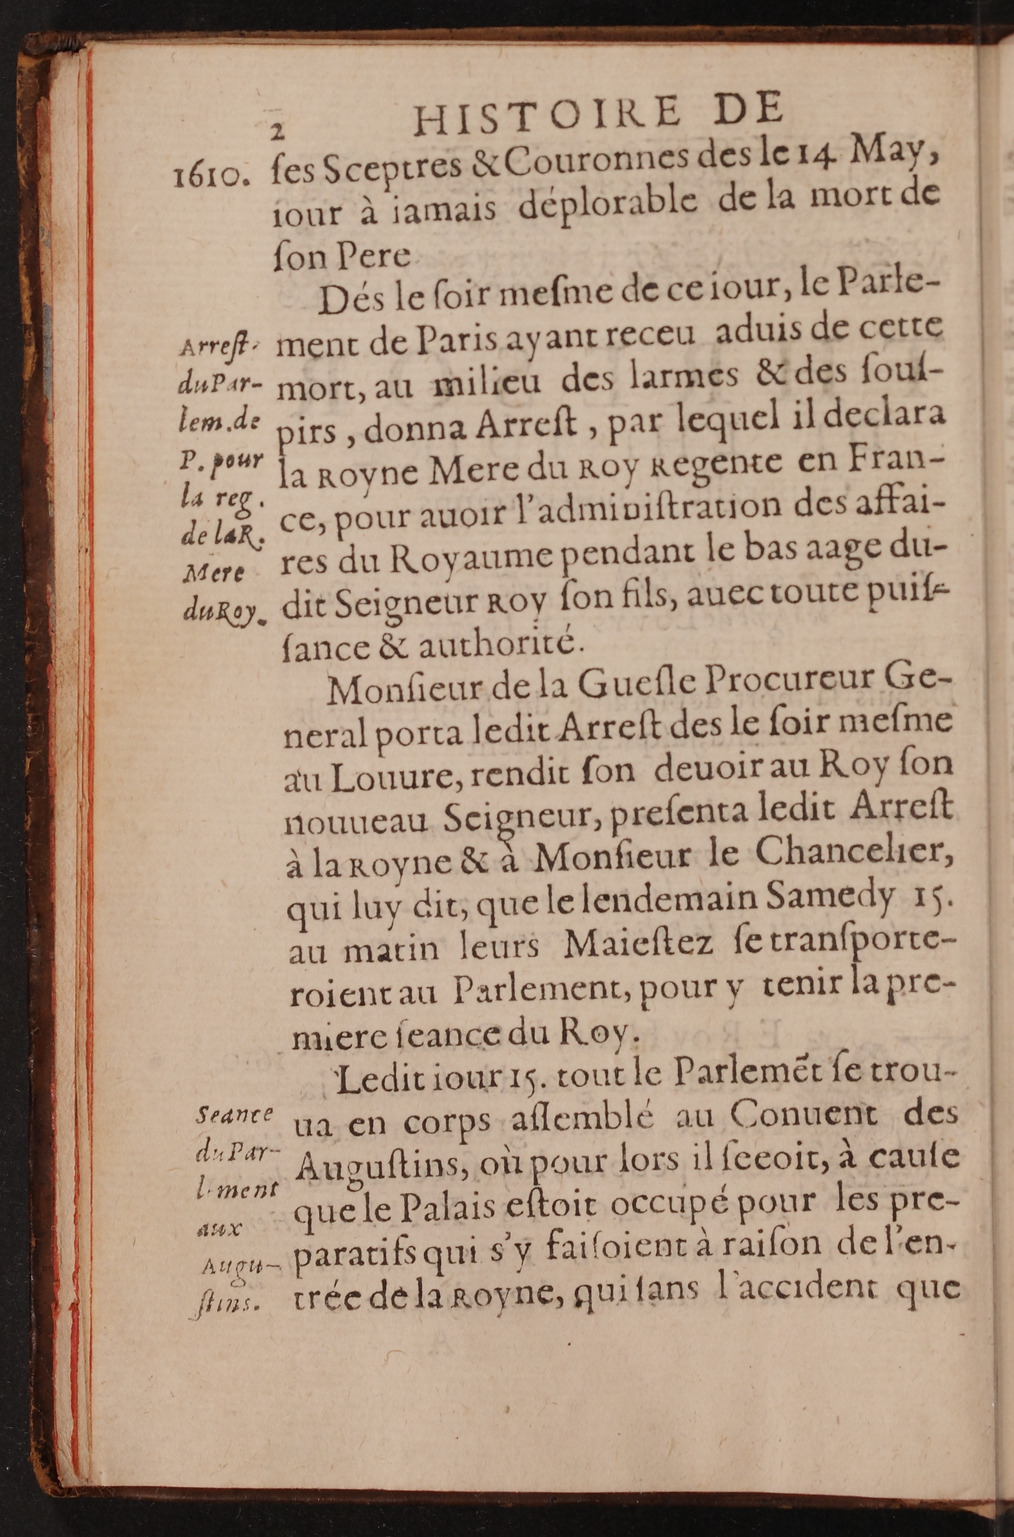 2 HISTOIRE DE
1610. ſes Sceptres & Couronnes des le 14. May,
iour à iamais déplorable de la mort de
ſon Pere
Dés le ſoir meſme de ce iour, le Parle-
ment de Paris ayant receu aduis de cette
mort, au milieu des larmes & des ſouſ-
pirs, donna Arreſt, par lequel il declara
la Royne Mere du Roy Regente en Fran-
ce, pour auoir l'adminiſtration des affai-
res du Royaume pendant le bas aage du-
dit Seigneur Roy ſon fils, auec toute puiſ-
ſance & authorité.
Arreſt
du Par-
lem. de
P. pour
la reg.
de la R.
Mere
du Roy.
Monſieur de la Gueſle Procureur Ge-
neral porta ledit Arreſt des le ſoir meſme
au Louure, rendit ſon deuoir au Roy ſon
nouueau Seigneur, preſenta ledit Arreſt
à la Royne & à Monſieur le Chancelier,
qui luy dit, que le lendemain Samedy 15.
au matin leurs Maieſtez ſe tranſporte-
roient au Parlement, pour y tenir la pre-
miere ſeance du Roy.
Ledit iour 15. tout le Parlemẽt ſe trou-
ua en corps aſſemblé au Conuent des
Auguſtins, où pour lors il ſeeoit, à cauſe
que le Palais eſtoit occupé pour les pre-
paratifs qui s'y faiſoient à raiſon de l'en-
trée de la Royne, qui ſans l'accident que
Seance
du Par-
lement
aux
Augu-
ſtins.